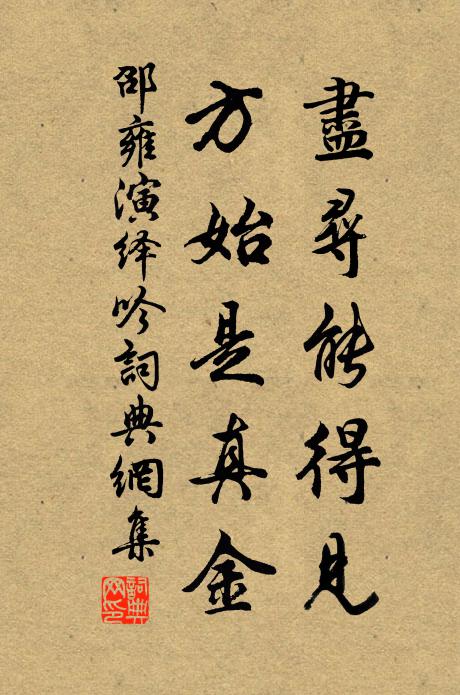 盡尋能得見
方始是真金
邵雍演绎吟詞典網集
詞典网印